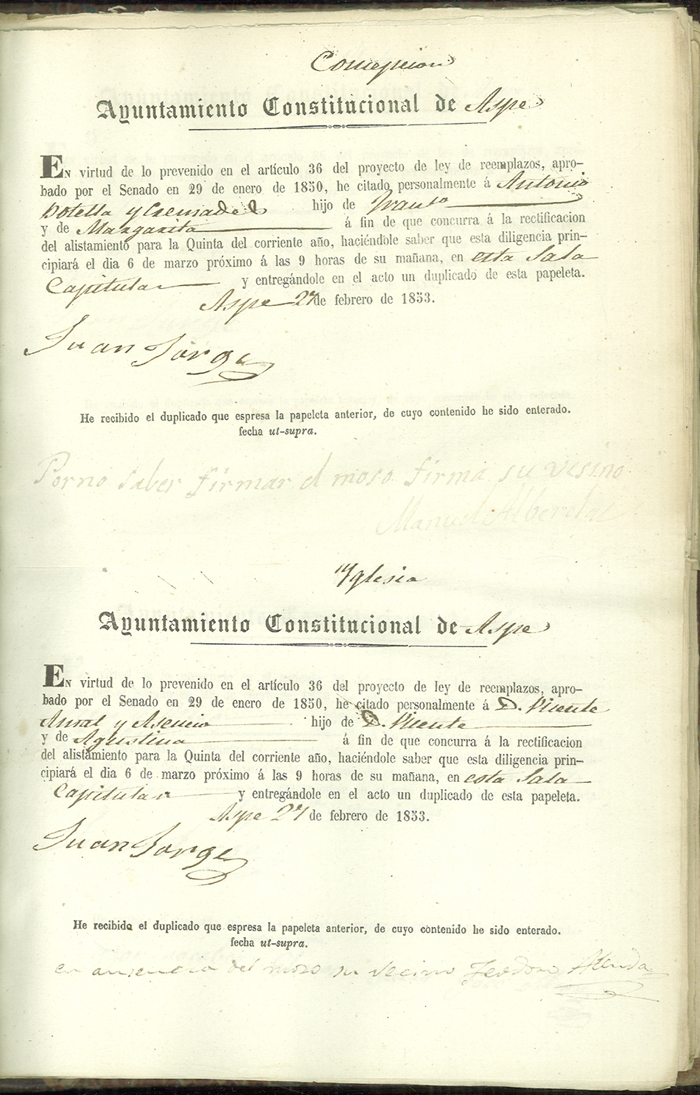 Concepcion
Ayuntamiento Constitucional de Aspe
En virtud de lo prevenido en el artículo 36 del proyecto de ley de reemplazos, apro-
bado por el Senado en 29 de enero de 1850, he citado personalmente á Antonio
Botella y Cremades hijo de
y de Margarita á fin de que concurra á la rectificacion
del alistamiento para la Quinta del corriente año, haciéndole saber que esta diligencia prin-
cipiará el dia 6 de marzo próximo á las 9 horas de su mañana, en esta Sala
Capitular y entregándole en el acto un duplicado de esta papeleta.
Aspe 27 de febrero de 1853.
Juan Jorge
He recibido el duplicado que espresa la papeleta anterior, de cuyo contenido he sido enterado.
fecha ut-supra.
Porno saber firmar el moso firma su vesino
Manuel
Yglesia
Ayuntamiento Constitucional de Aspe
En virtud de lo prevenido en el artículo 36 del proyecto de ley de reemplazos, apro-
bado por el Senado en 29 de enero de 1850, he citado personalmente á D. Vicente
y Asencio hijo de D. Vicente
y de Agustina á fin de que concurra á la rectificacion
del alistamiento para la Quinta del corriente año, haciéndole saber que esta diligencia prin-
cipiará el dia 6 de marzo próximo á las 9 horas de su mañana, en esta Sala
Capitular y entregándole en el acto un duplicado de esta papeleta.
Aspe 27 de febrero de 1853.
Juan Jorge
He recibido el duplicado que espresa la papeleta anterior, de cuyo contenido he sido enterado.
fecha ut-supra.
en ausencia del mozo su vecino Teodoro